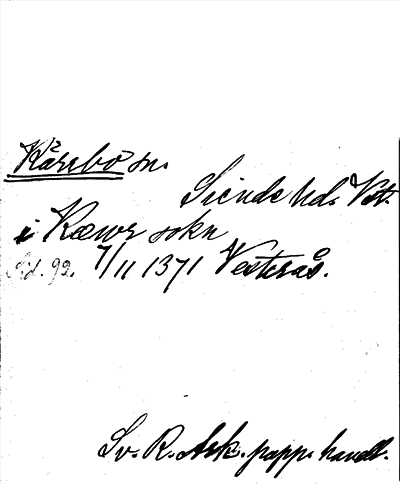 Kärrbo sn.
Siende hd. Vst.
i Kærvr sokn
Sid. 92. 7/11 1371 Vesterås.
Sv. R. Ark. papp. handl.